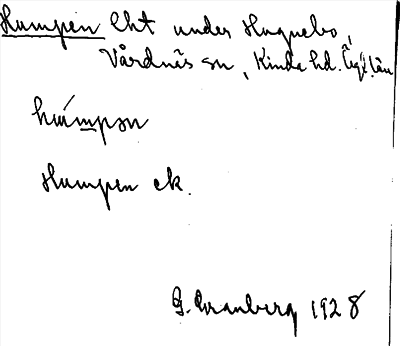 Humpen lht under Hagnebo,
Vårdnäs sn, Kinda hd. Ög. län
humpən
Humpen ek.
G. Granberg 1928